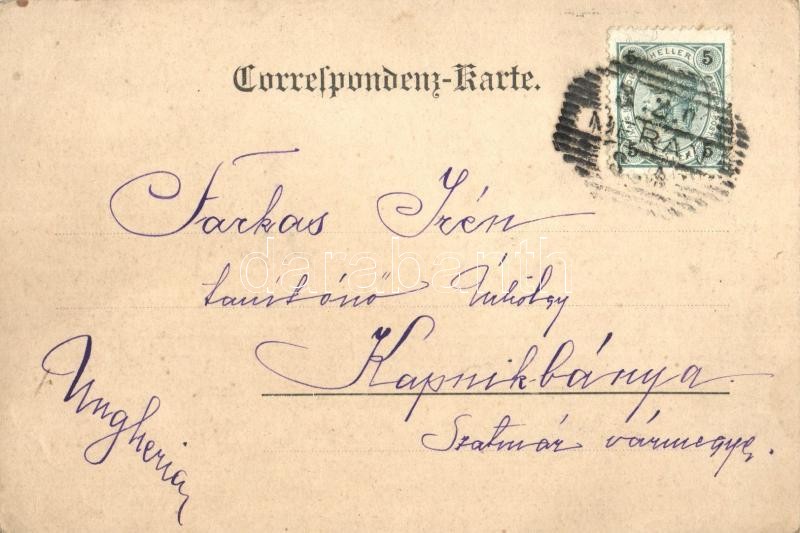 Correspondenz-Karte.
5 HELLER 5
5 5
Farkas Irén
tanítónő Úrhölgy
Kapnikbánya.
Szatmár vármegye.
Ungheria
darabanth